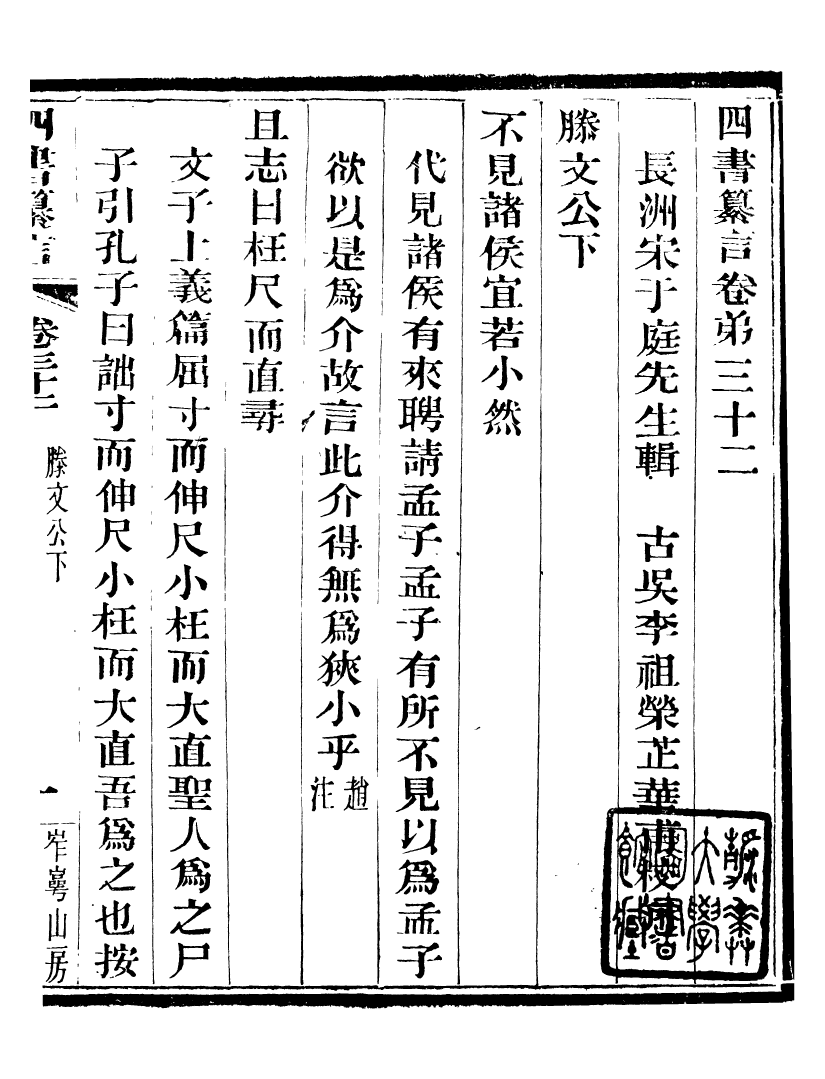 四書纂言卷弟三十二
長洲宋于庭先生輯　古吳李祖榮芷華甫校
滕文公下
不見諸侯宜若小然
代見諸侯有來聘請孟子孟子有所不見以爲孟子
欲以是爲介故言此介得無爲狹小乎趙注
且志曰枉尺而直尋
文子上義篇屈寸而伸尺小枉而大直聖人爲之尸
子引孔子曰詘寸而伸尺小枉而大直吾爲之也按
四書纂言　卷三十二　滕文公下　一　岝崿山房